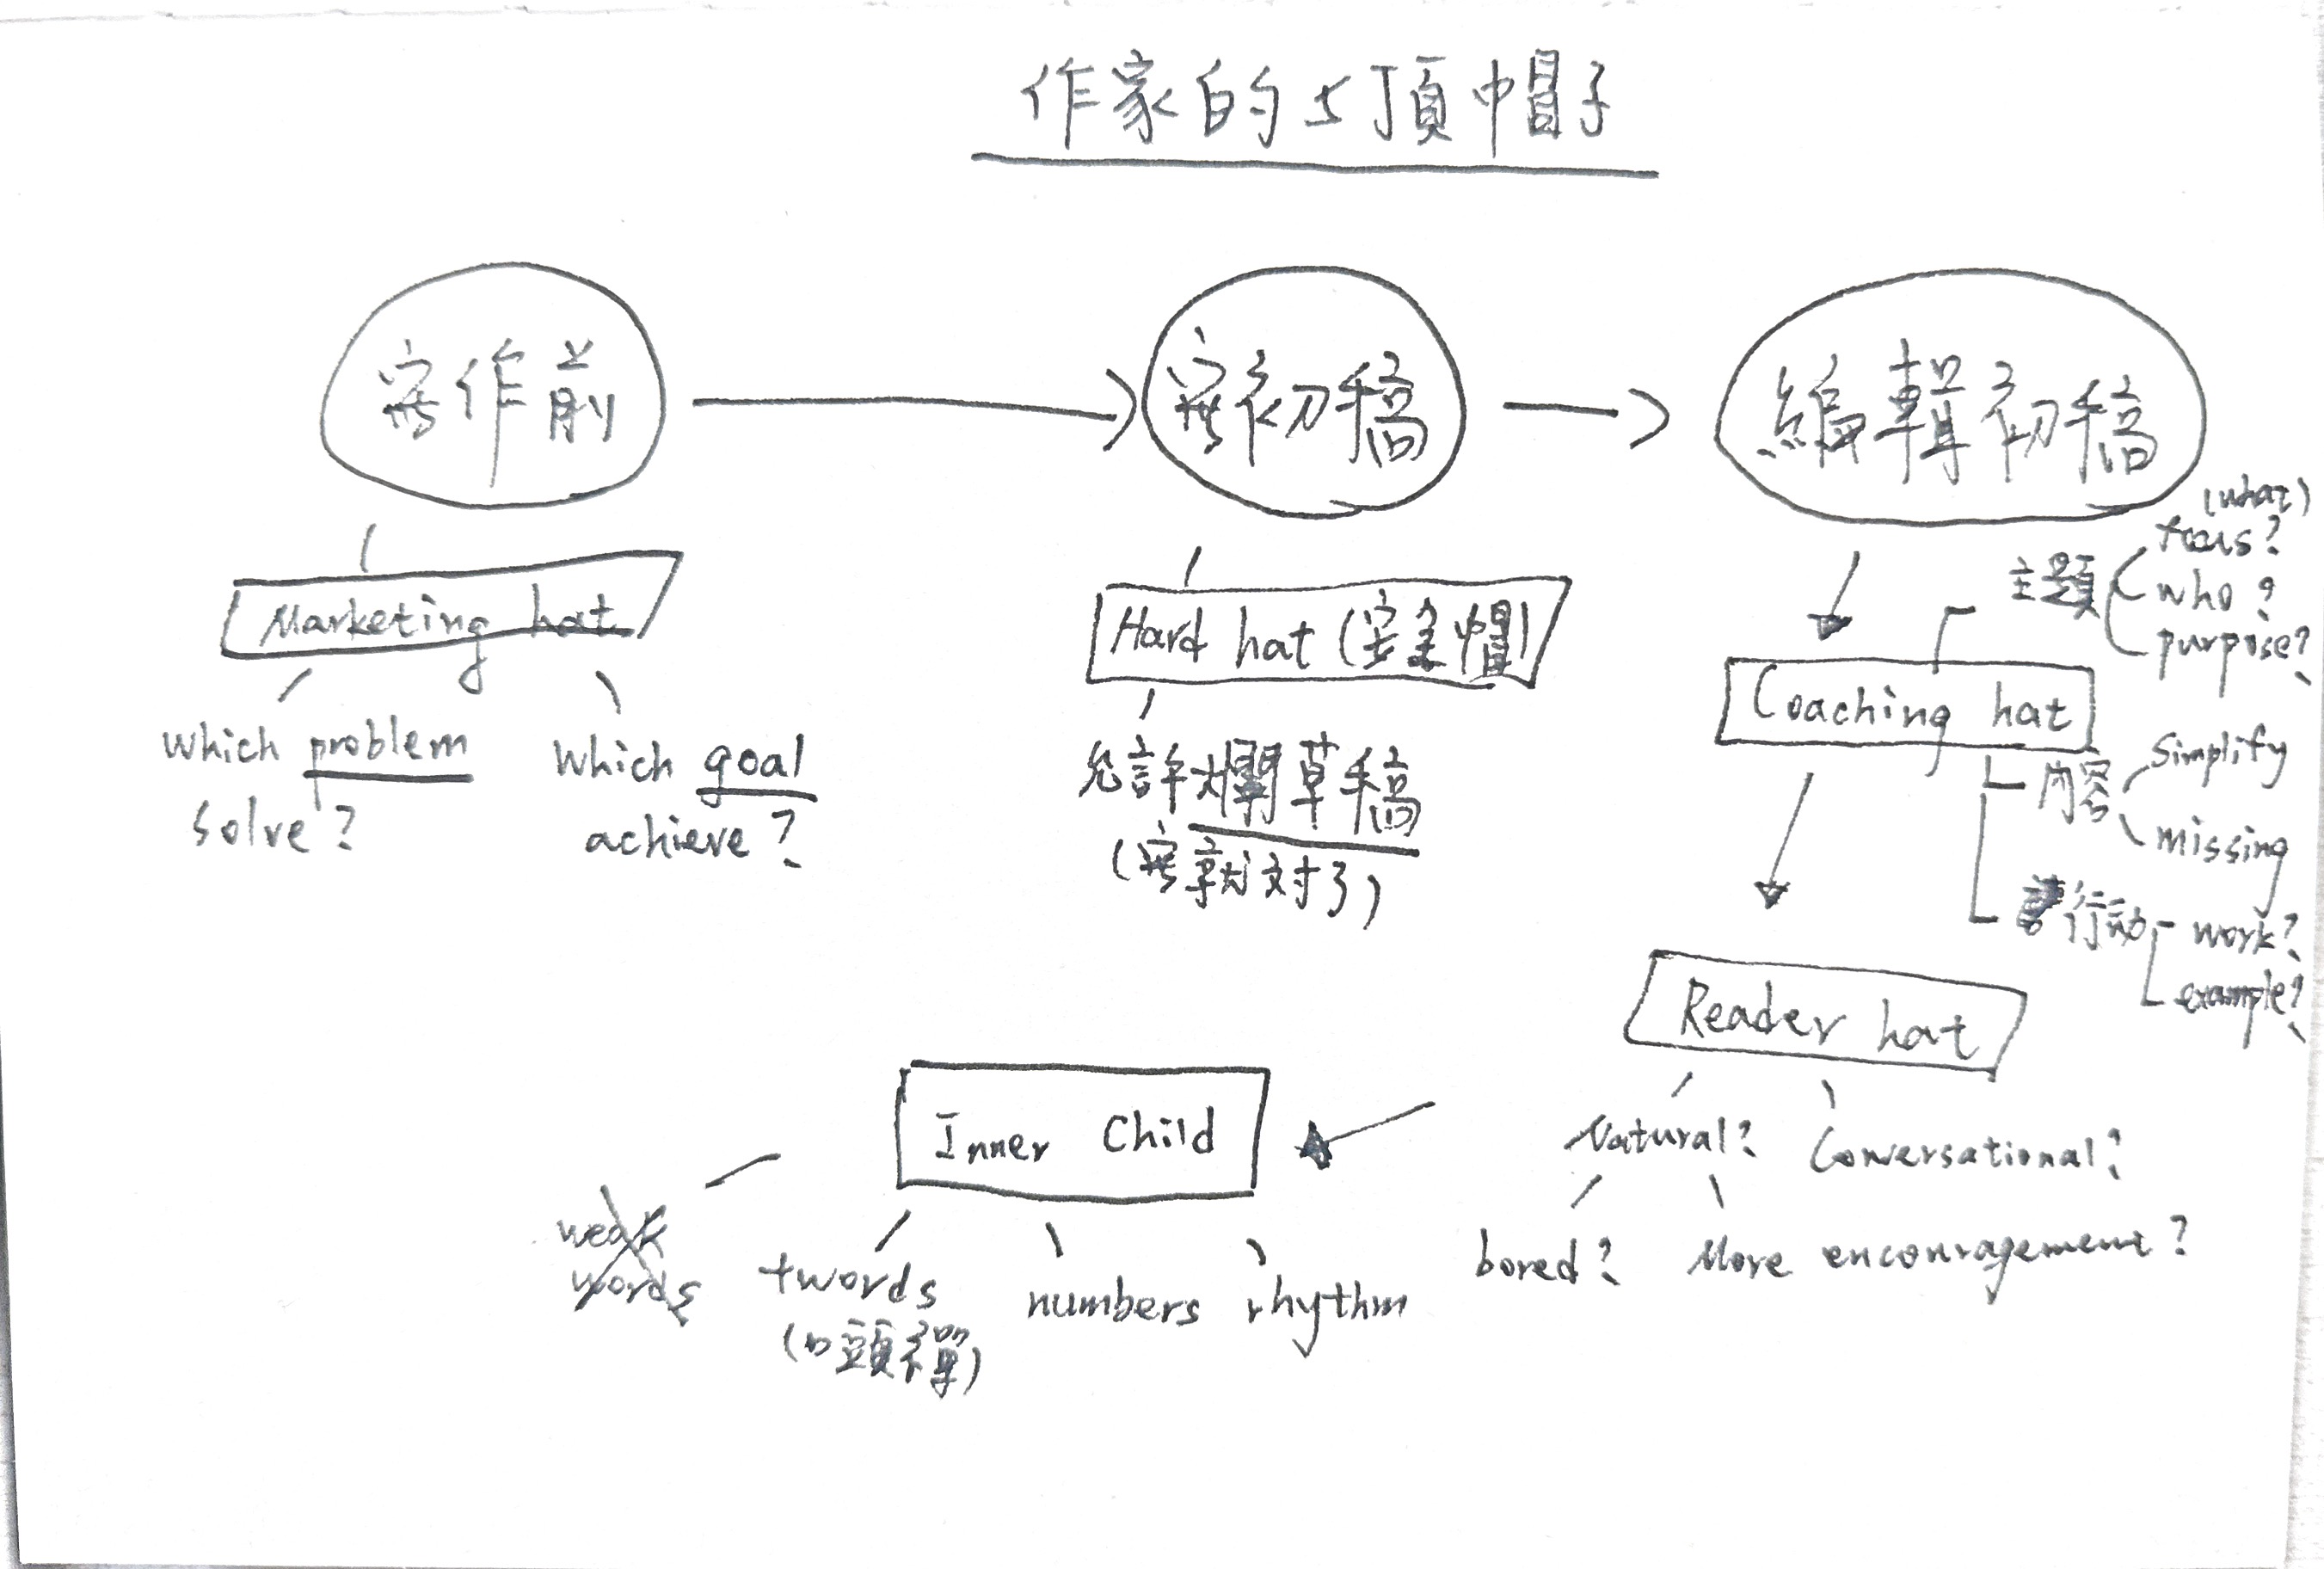 作家的5頂帽子
寫作前
寫初稿
編輯初稿
Marketing hat
which problem
solve?
Which goal
achieve?
Hard hat (安全帽)
允許爛草稿
(寫就對了)
Coaching hat
主題
(what)
focus?
who?
purpose?
內容
simplify
missing
行動
work?
example?
Reader hat
Natural?
Conversational?
bored?
More encouragement?
Inner Child
weak
words
+words
(口頭禪)
numbers
rhythm